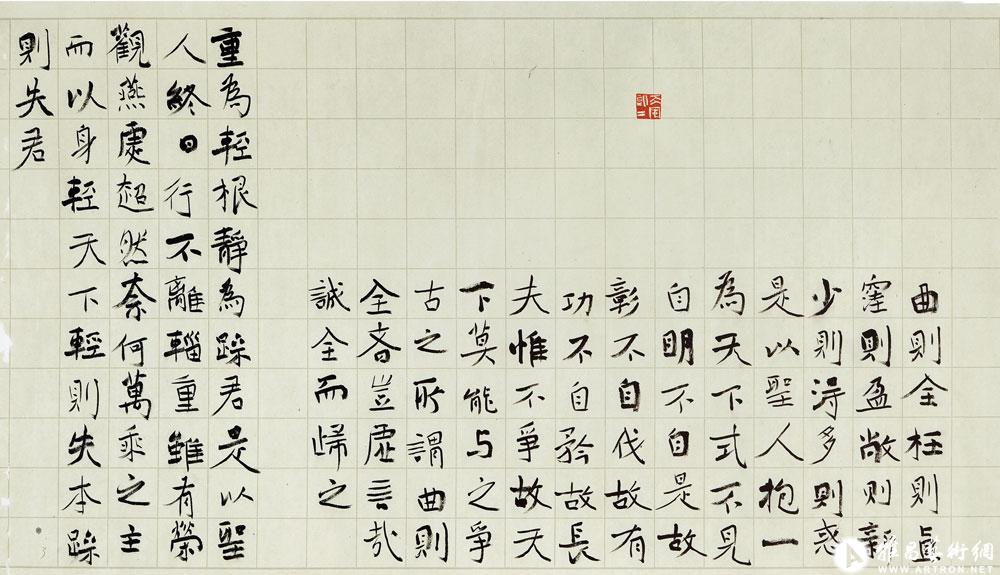 曲則全枉則直
窪則盈敝則新
少則得多則惑
是以聖人抱一
為天下式不見
自明不自是故
彰不自伐故有
功不自矜故長
夫惟不爭故天
下莫能与之爭
古之所謂曲則
全者豈虛言哉
誠全而歸之
重為輕根靜為躁君是以聖
人終日行不離輜重雖有榮
觀燕處超然奈何萬乘之主
而以身輕天下輕則失本躁
則失君
雅昌藝術網
WWW.ARTRON.NET